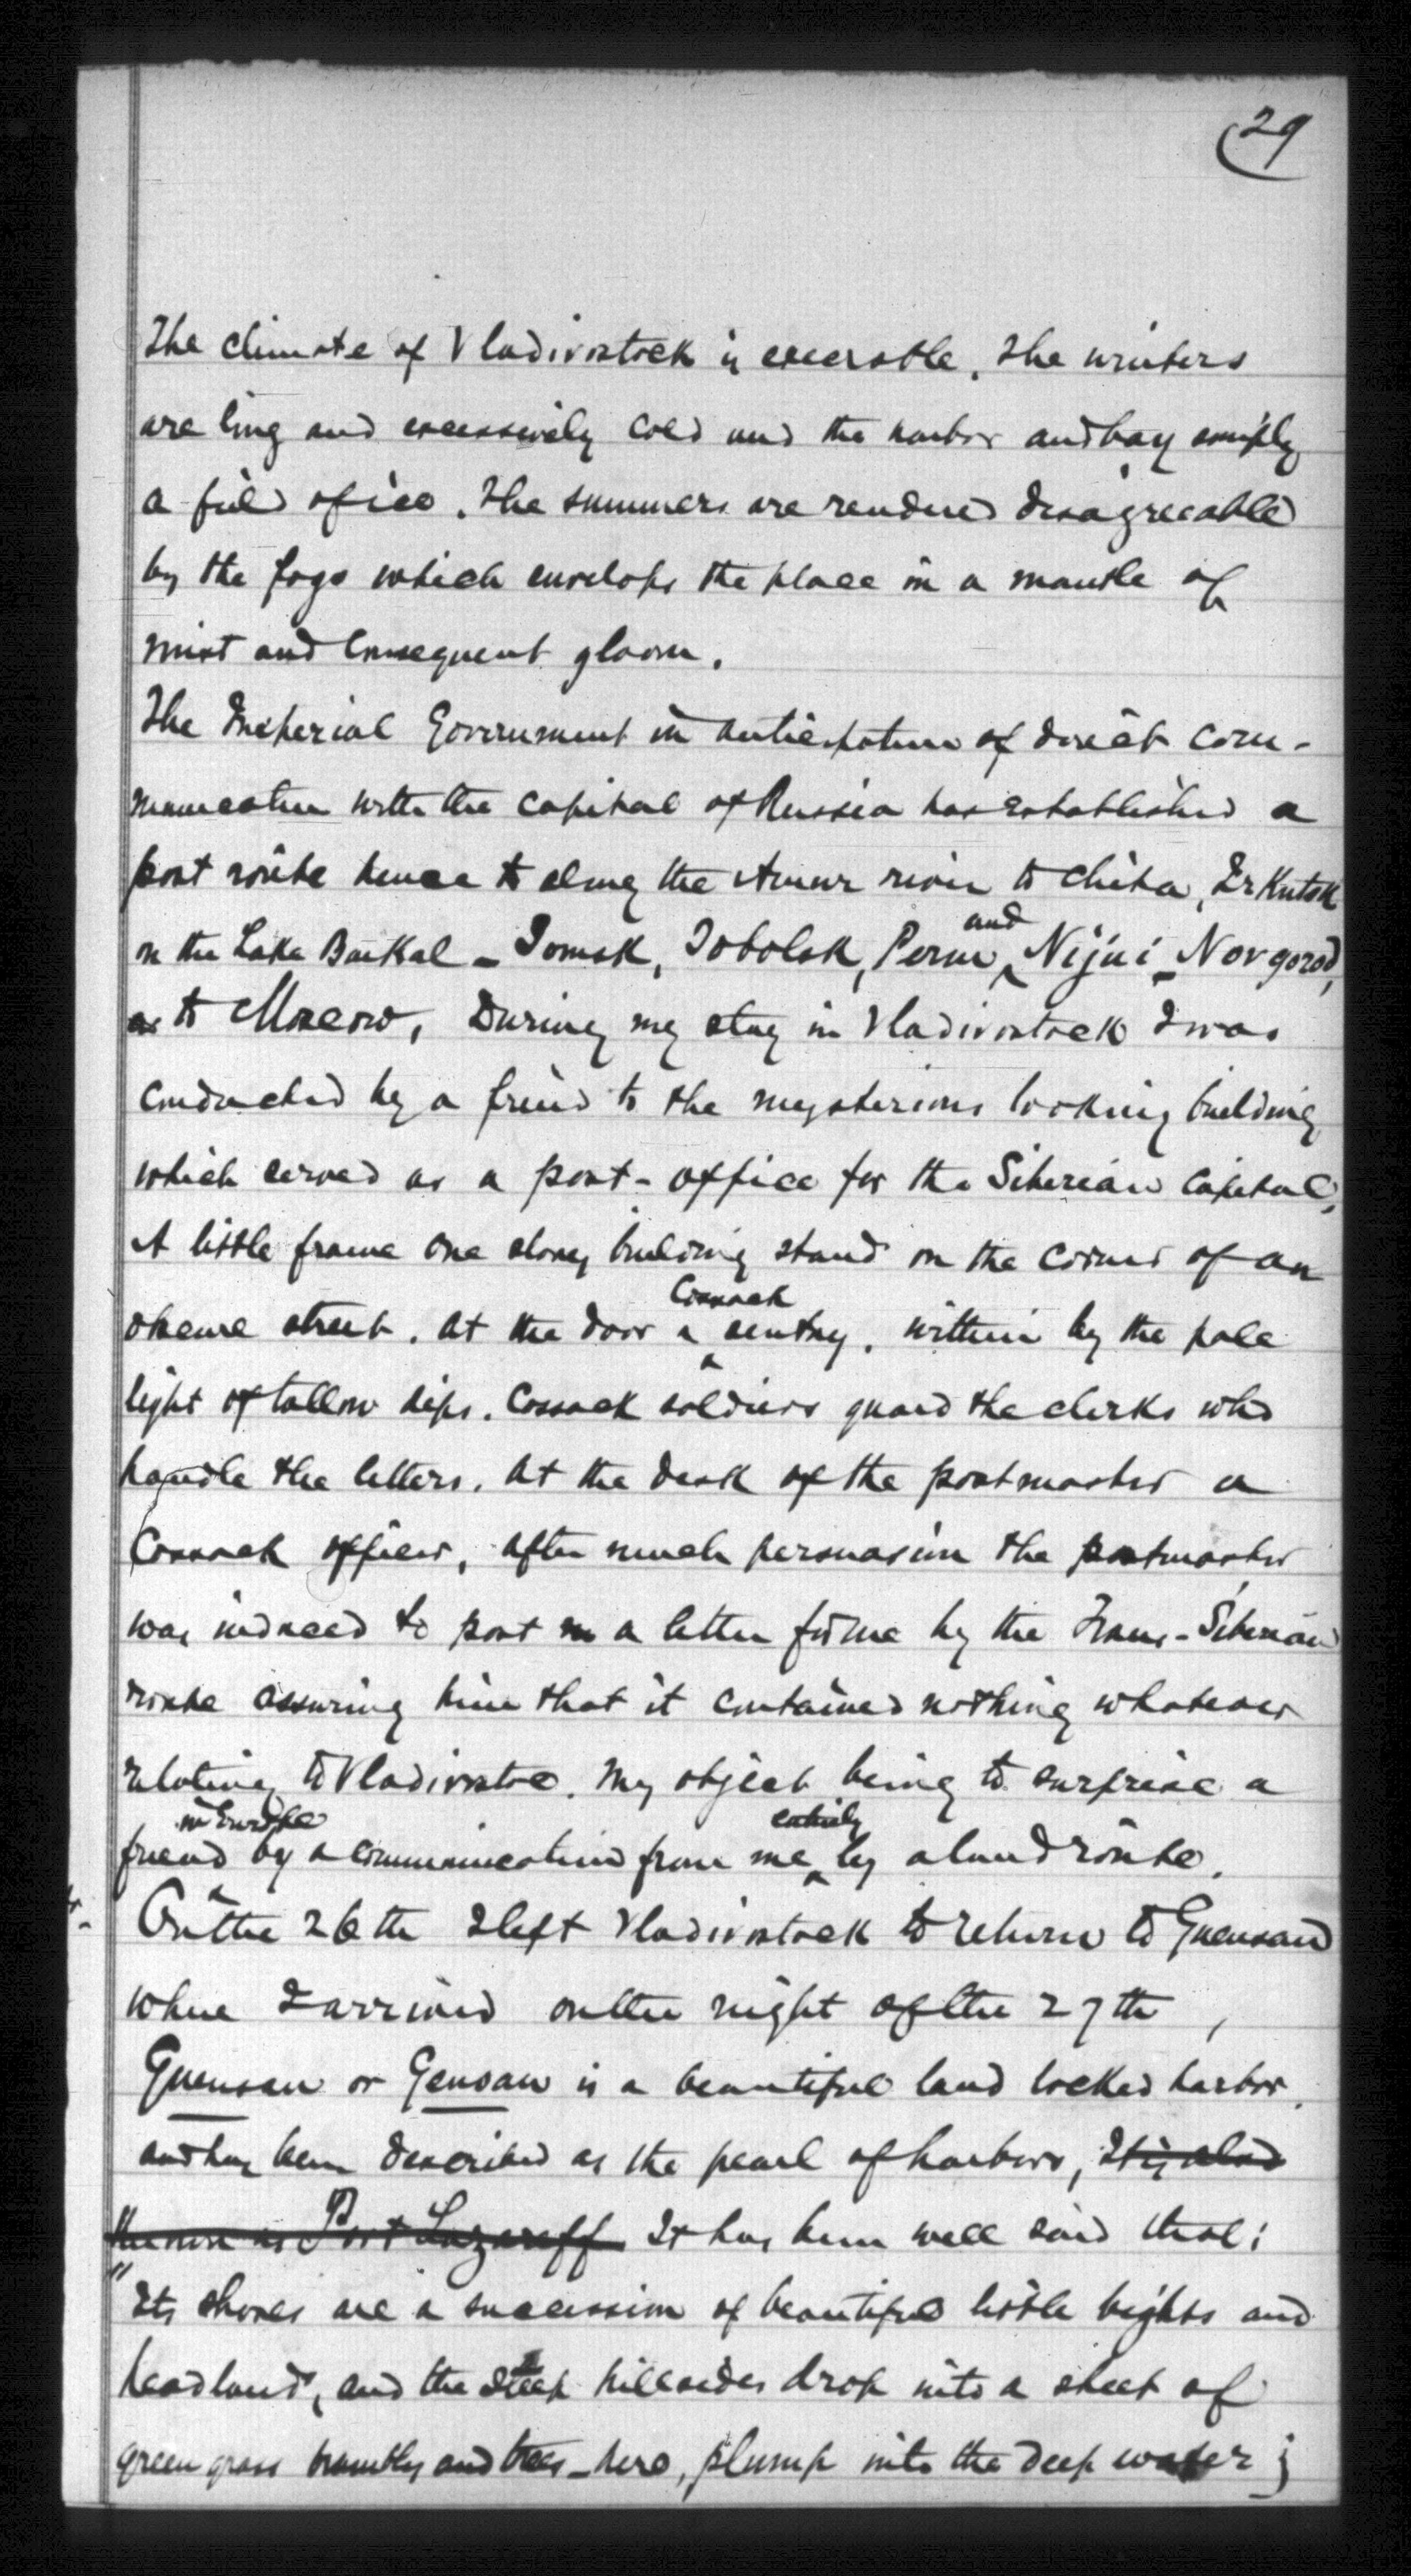 29
The climate of Vladivostock is execrable. The winters
are long and excessively cold and the harbor and bay simply
a field of ice. The summers are rendered disagreeable
by the fogs which envelops the place in a mantle of
mist and consequent gloom.
The Imperial Government in anticipation of direct com-
munication with the capital of Russia has established a
post route hence to along the Amur river to Chita, Irkutsk
on the Lake Baikal - Tomsk, Tobolsk, Perm and Nijni-Novgorod,
to Moscow. During my stay in Vladivostock I was
conducted by a friend to the mysterious looking building
which served as a post-office for the Siberian capital,
A little frame one story building stands on the corner of an
obscure street. At the door a Cossack sentry. Within by the pale
light of tallow dips. Cossack soldiers guard the clerks who
handle the letters. At the desk of the postmaster a
Cossack officer, after much persuasion the postmaster
was induced to post a letter for me by the Trans-Siberian
route assuring him that it contained nothing whatever
relating to Vladivostoc. My object being to surprise a
friend in Europe by a communication from me entirely by a land route.
On the 26th I left Vladivostock to return to Guensan
where I arrived on the night of the 27th,
Guensan or Gensan is a beautiful land locked harbor.
and has been described as the pearl of harbors, It is also
known as Port Lazareff It has been well said that:
"Its shores are a succession of beautiful little bights and
headlands, and the steep hillsides drop into a sheet of
green grass brambles and trees - here, plump into the deep water;